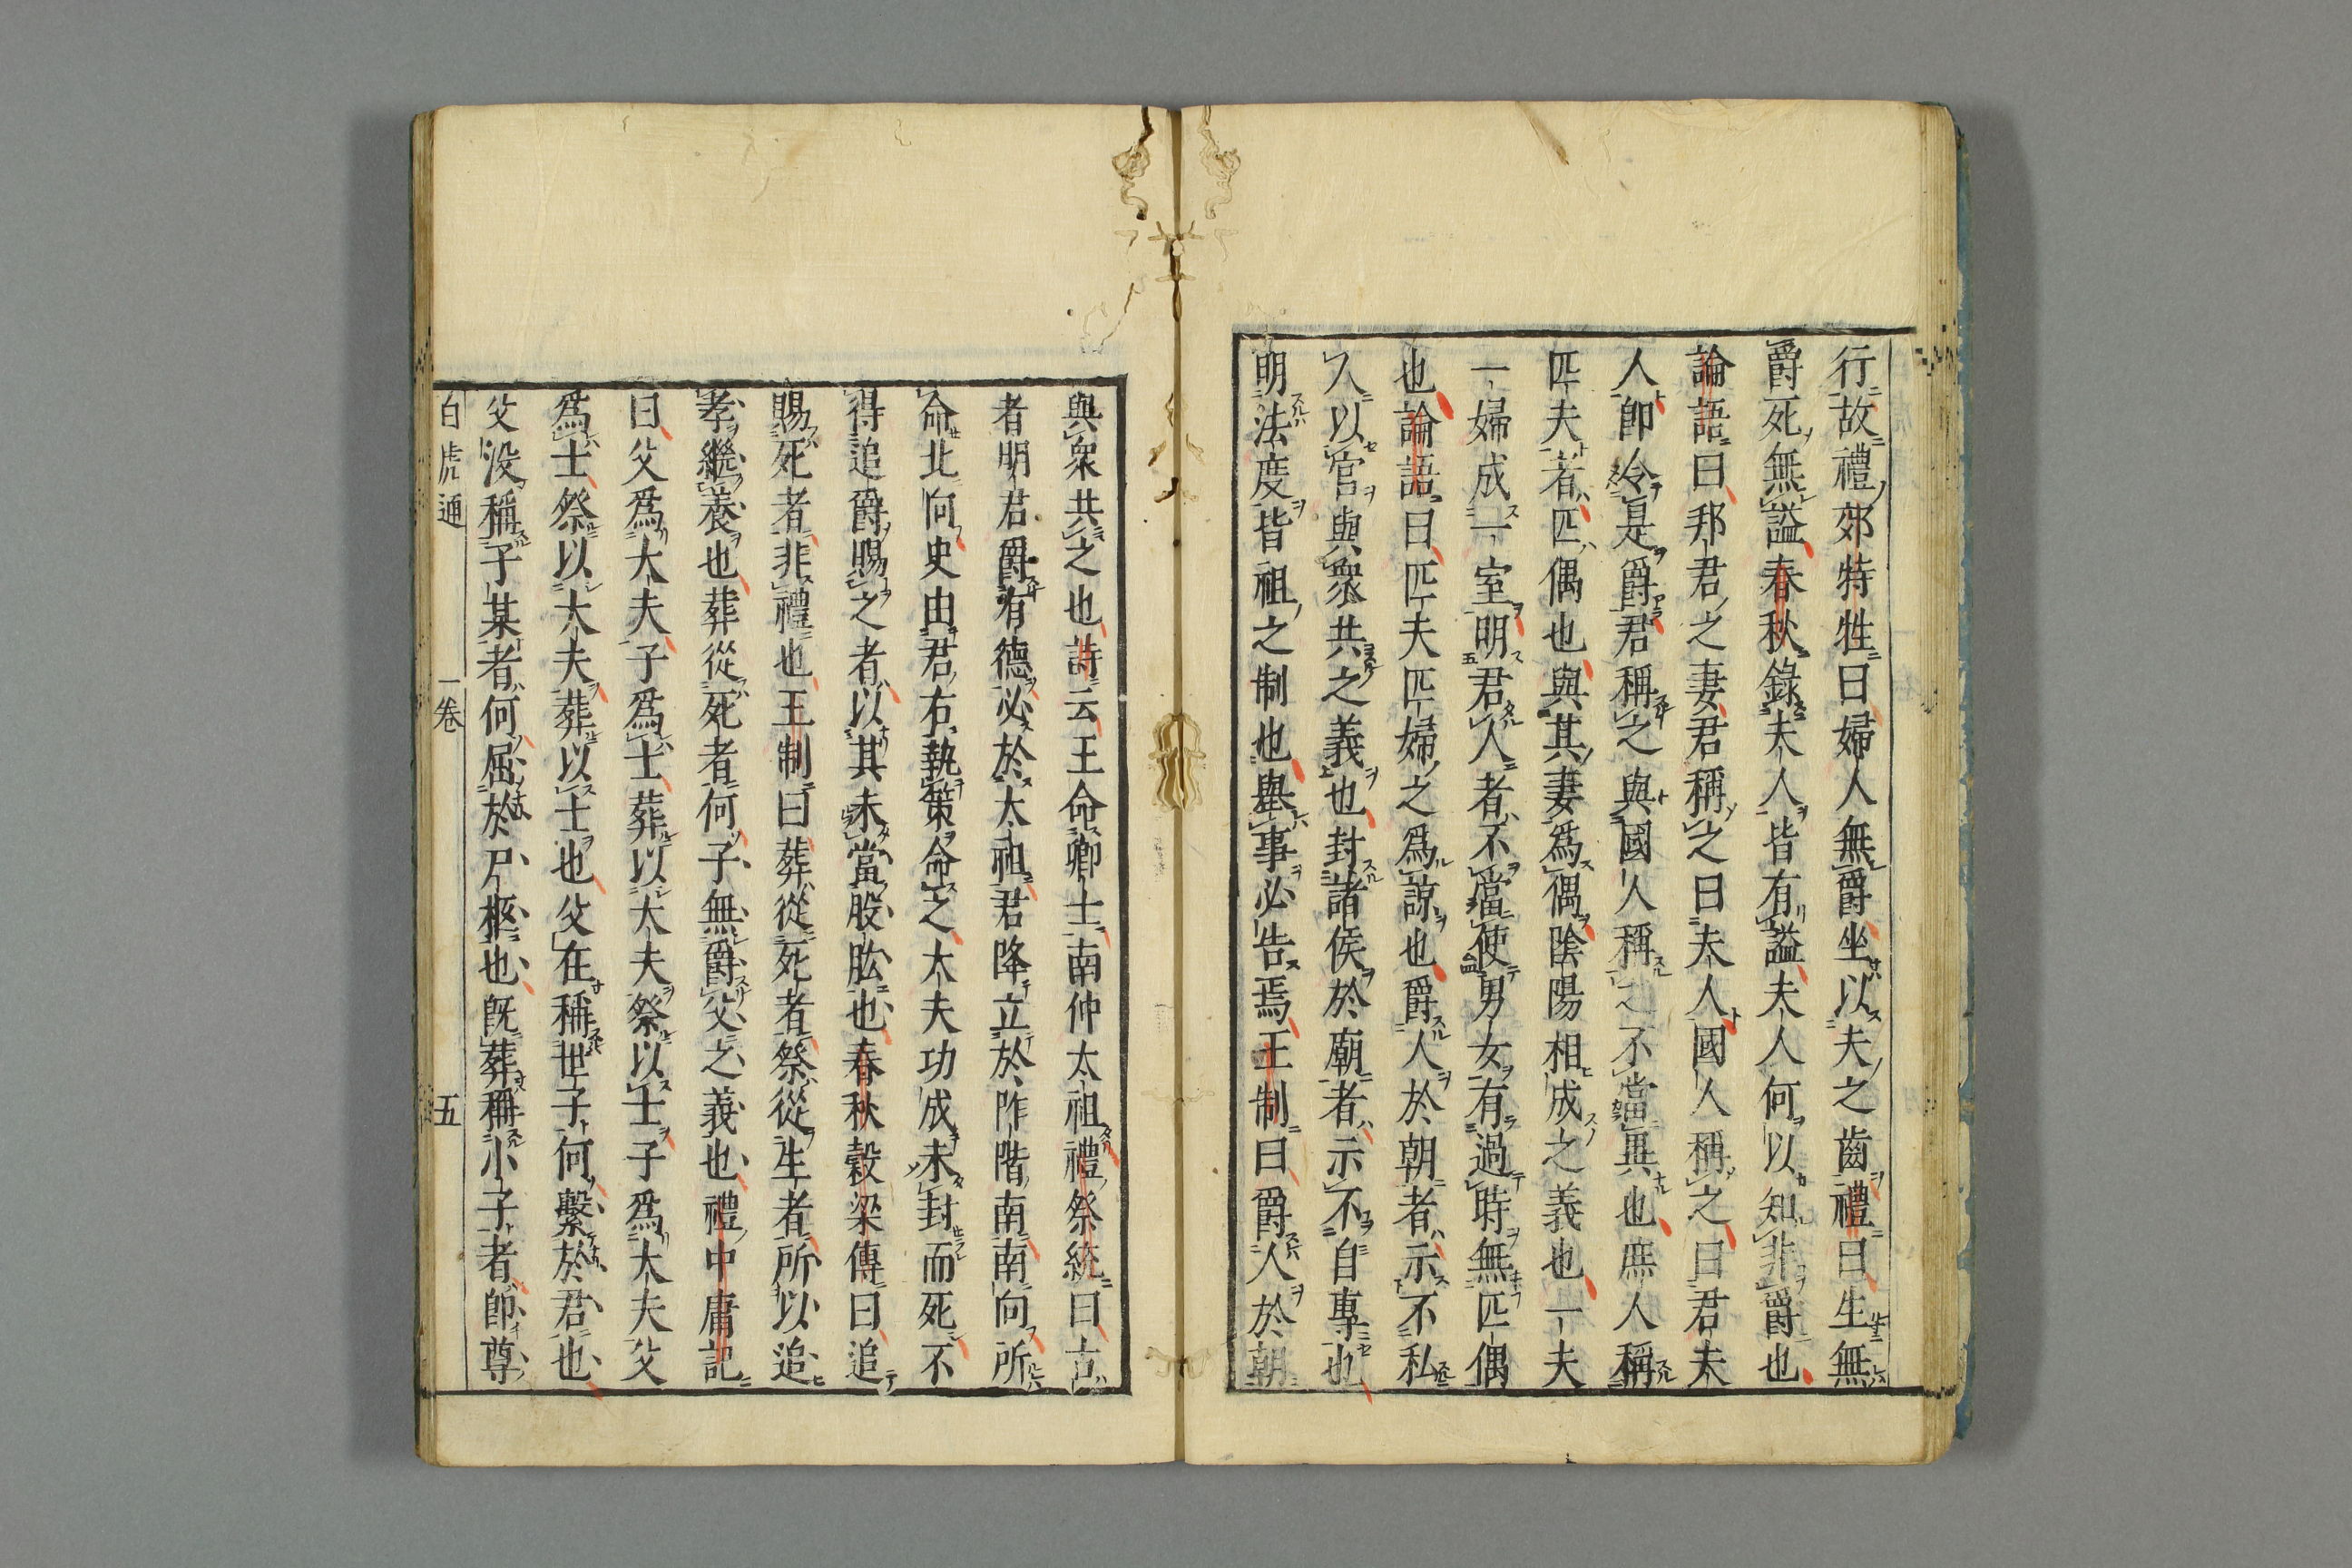 行故禮郊特牲曰婦人無爵坐以夫之齒禮曰生無
爵死無謚春秋錄夫人皆有謚夫人何以知非爵也
論語曰邦君之妻君稱之曰夫人國人稱之曰君夫
人卽令是爵君稱之與國人稱之不當異也庶人稱
匹夫者匹偶也與其妻爲偶陰陽相成之義也一夫
一婦成一室明君人者不當使男女有過時無匹偶
也論語曰匹夫匹婦之爲諒也爵人於朝者示不私
人以官與衆共之義也封諸侯於廟者示不自專也
明法度皆祖之制也舉事必告焉王制曰爵人於朝
與衆共之也詩云王命卿士南仲太祖禮祭統曰古
者明君爵有德必於太祖君降立於阼階南南向所
命北向史由君右執策命之大夫功成未封而死不
得追爵賜之者以其未當股肱也春秋穀梁傳曰追
賜死者非禮也王制曰葬從死者祭從生者所以追
孝繼養也葬從死者何子無爵父之義也禮中庸記
曰父爲大夫子爲士葬以大夫祭以士子爲大夫父
爲士祭以大夫葬以士也父在稱世子何繫於君也
父没稱子某者何屈於尸柩也旣葬稱小子者卽尊
白虎通 一卷 五